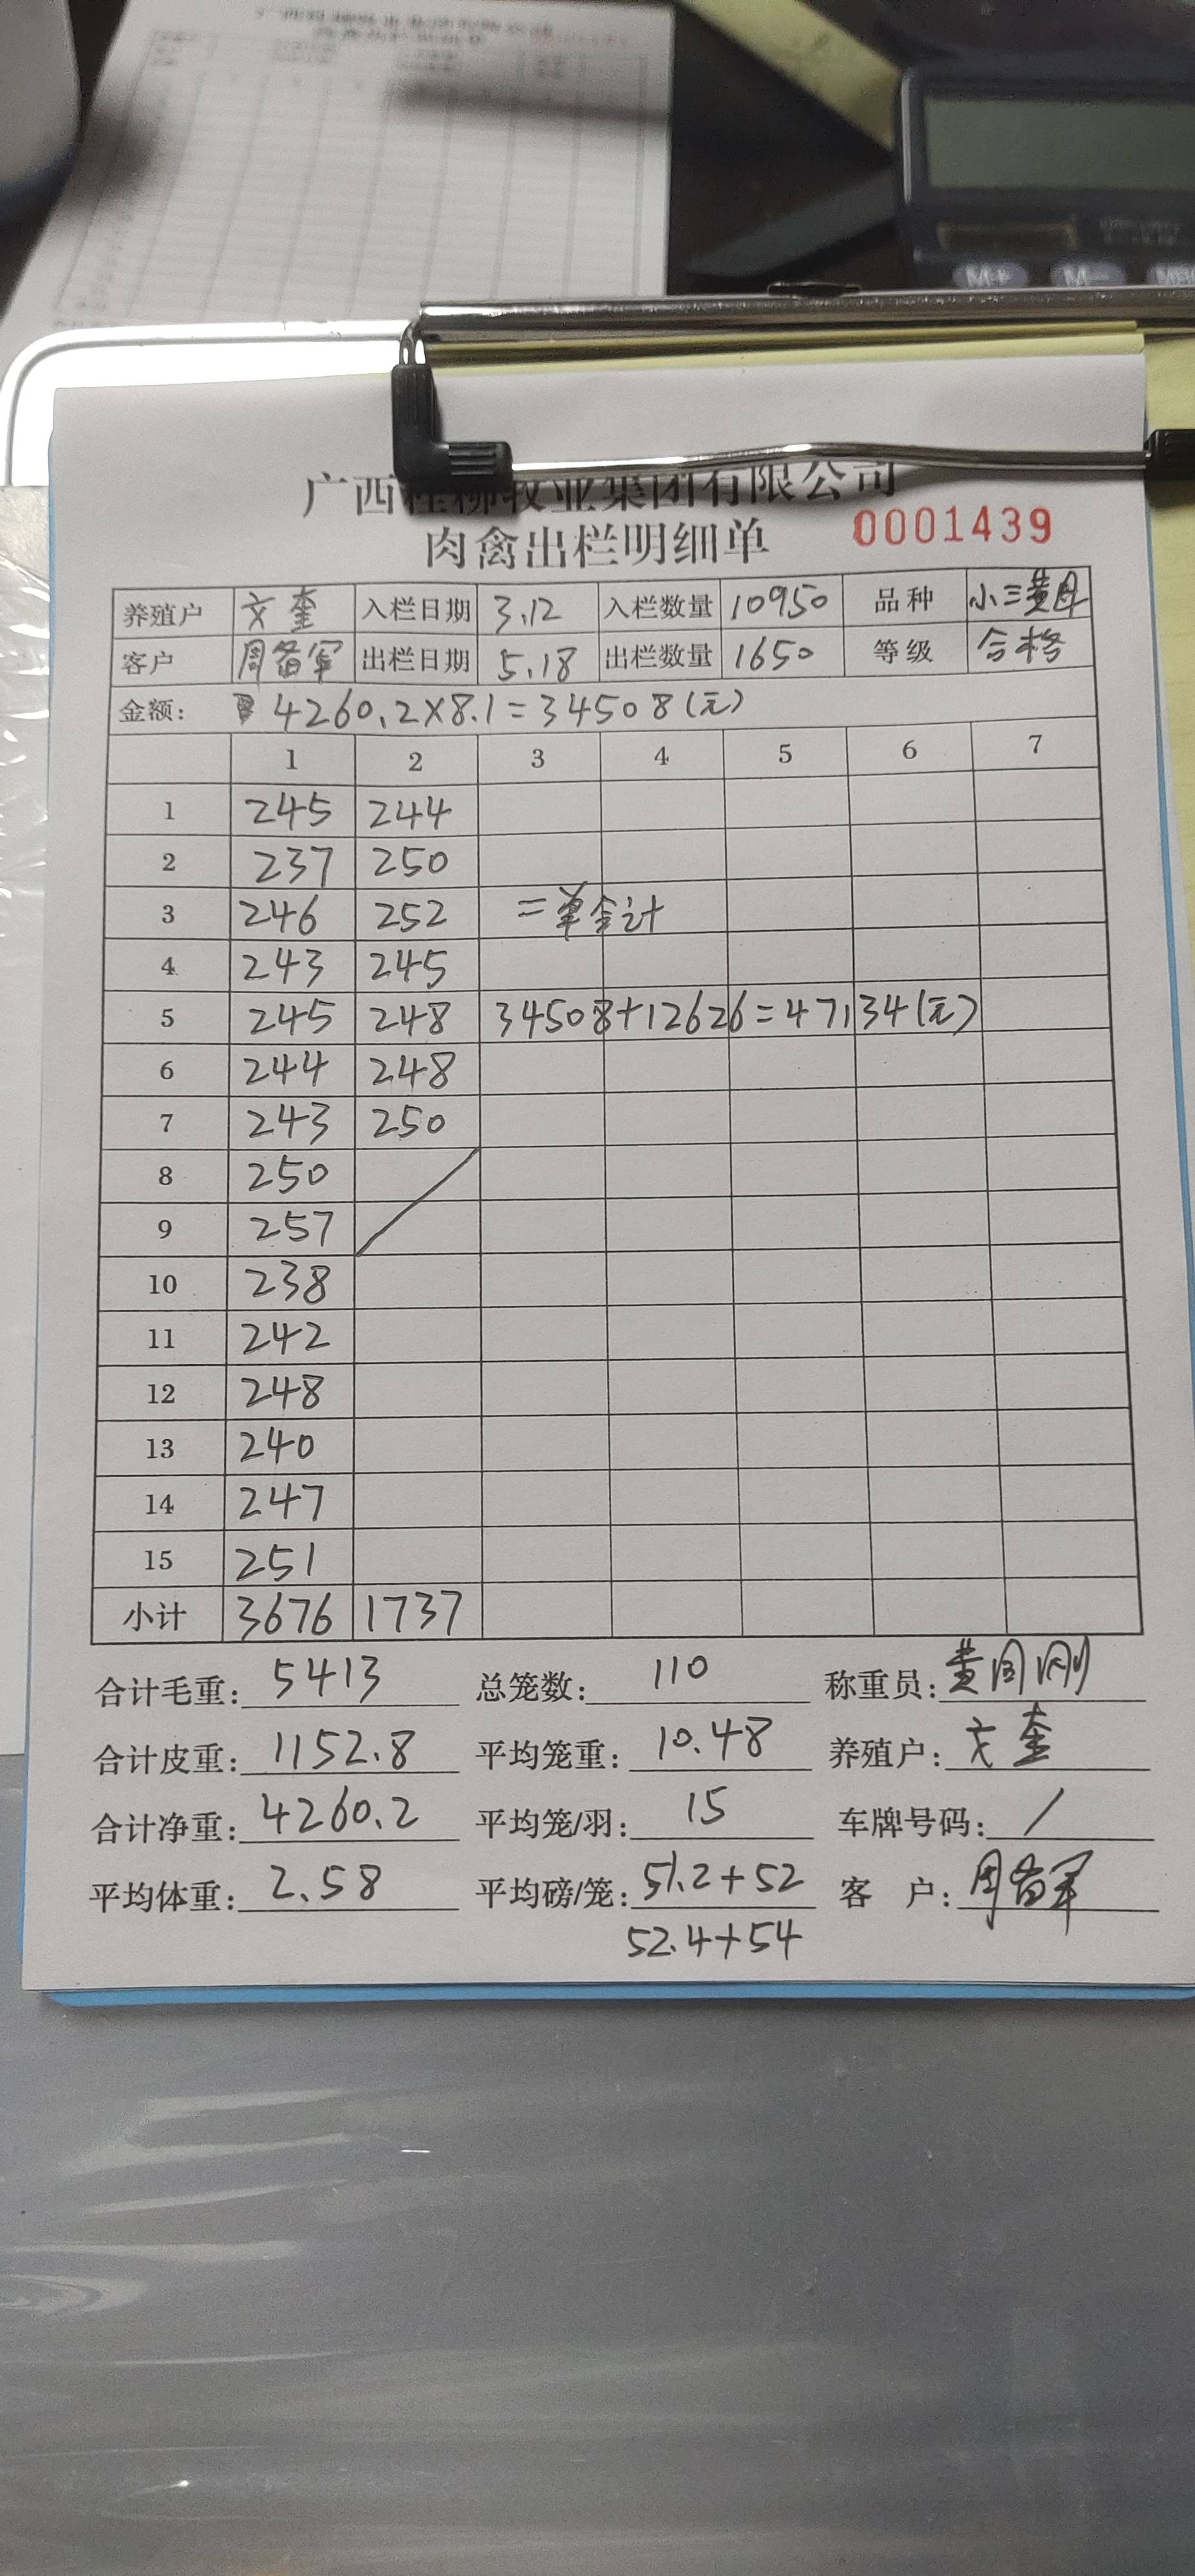 广西桂柳牧业集团有限公司
肉禽出栏明细单 0001439
养殖户 文奎 入栏日期 3.12 入栏数量 10950 品种 小三黄母
客户 周备军 出栏日期 5.18 出栏数量 1650 等级 合格
金额: 4260.2×8.1=34508(元)
1 2 3 4 5 6 7
1 245 244
2 237 250
3 246 252 二单合计
4 243 245
5 245 248 34508+12626=47134(元)
6 244 248
7 243 250
8 250
9 257
10 238
11 242
12 248
13 240
14 247
15 251
小计 3676 1737
合计毛重: 5413 总笼数: 110 称重员: 黄周刚
合计皮重: 1152.8 平均笼重: 10.48 养殖户: 文奎
合计净重: 4260.2 平均笼/羽: 15 车牌号码: /
平均体重: 2.58 平均磅/笼: 51.2+52 客 户: 周备军
52.4+54